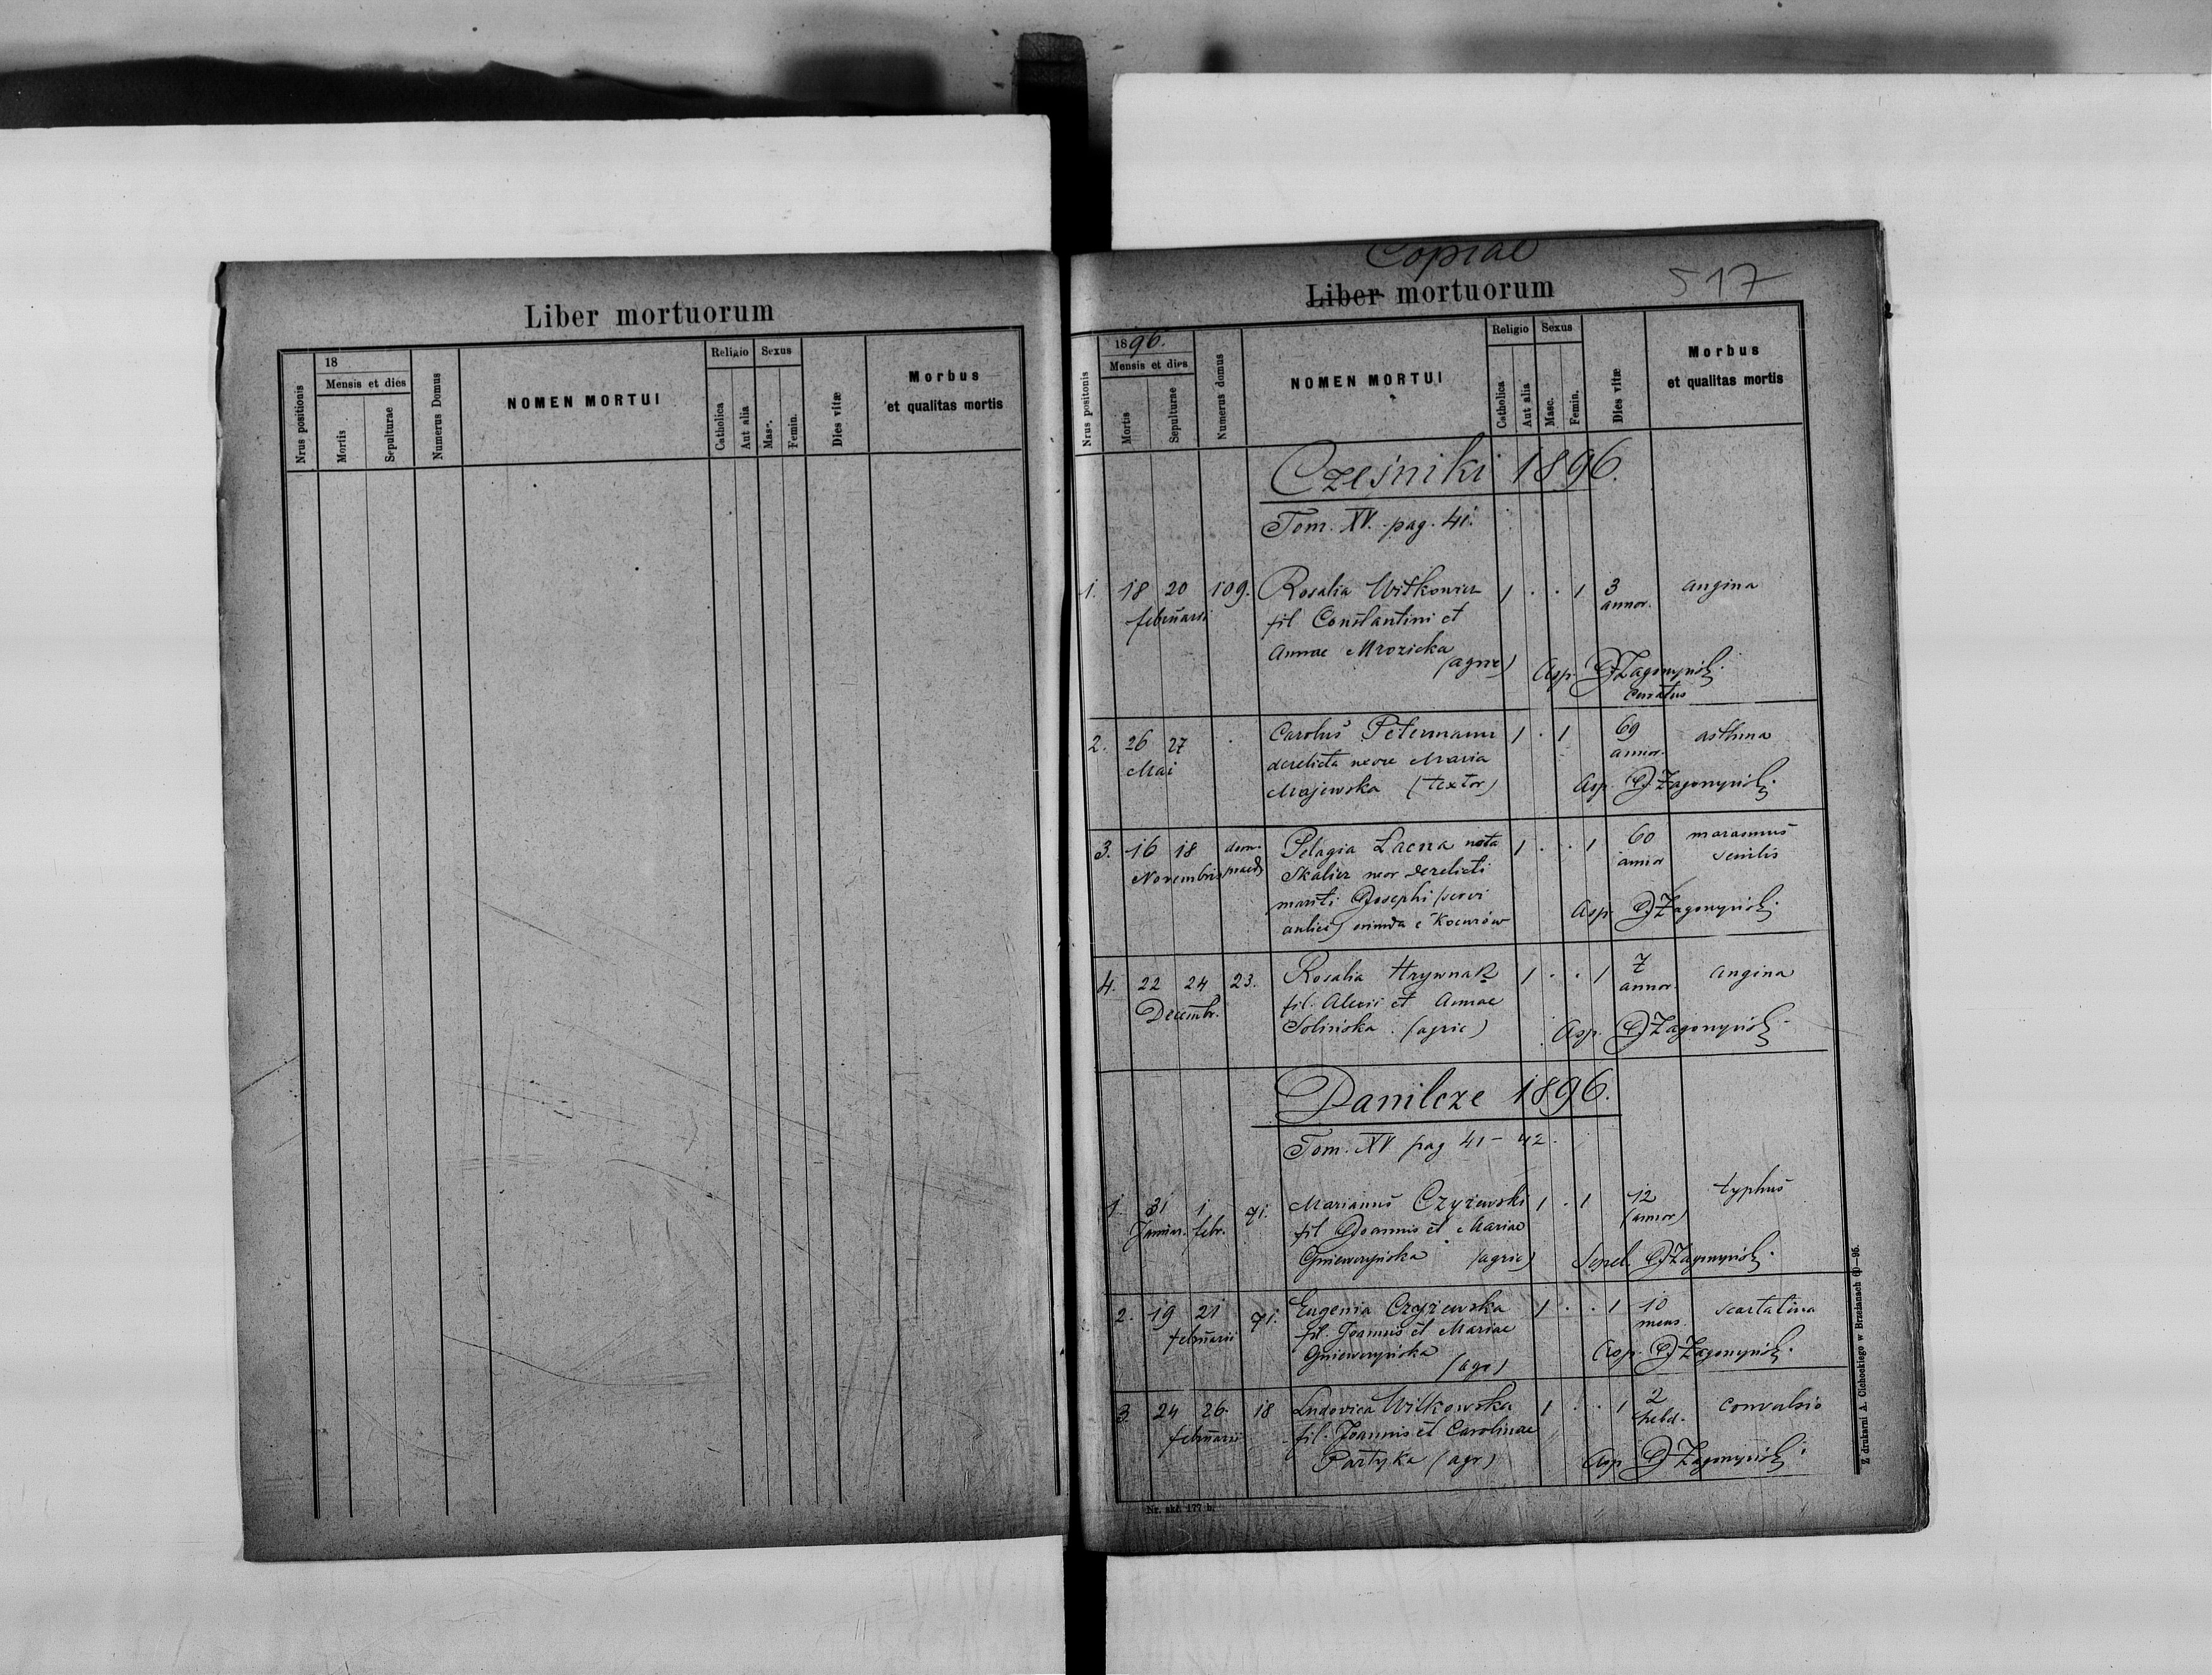 Liber mortuorum
18
Mensis et dies
Nrus positionis
Mortis
Sepulturae
Numerus Domus
NOMEN MORTUI
Religio
Sexus
Catholica
Aut alia
Masc.
Femin.
Dies vitæ
Morbus
et qualitas mortis
Copiae
517
Liber mortuorum
1896.
Mensis et dies
Nrus positonis
Mortis
Sepulturae
Numerus domus
NOMEN MORTUI
Religio
Sexus
Catholica
Aut alia
Masc.
Femin.
Dies vitæ
Morbus
et qualitas mortis
Cześniki 1896.
Tom. XV. pag. 41.
1. 18 20 109. Rosalia Witkowicz 1 . . 1 3 angina
februarii fil Constantini et annor.
Annae Mrozicka
(agric) Asp.
curatus
2. 26 27 . Carolus Petermann 1 . 1 69 asthma
Mai derelicta Maria annor.
Majewska (textor) Asp.
3. 16 18 dom. Pelagia Łacna nata 1 . . 1 60 marasmus
Novembris praed. Skalicz derelicti annor senilis
mariti Josephi (servi
aulici) oriunda e Kocurów Asp.
4. 22 24 23. Rosalia Hrywnak 1 . . 1 7 angina
Decembr. fil. Alexii et Annae annor.
Solińska (agric) Asp.
Danilcze 1896.
Tom. XV pag 41 - 42.
1. 31 1 71. Marianus Czyżewski 1 . 1 12 typhus
Januar. febr. fil Joannis et Mariae (annor)
Gniewczyńska (agric) Sepel.
2. 19 21 71. Eugenia Czyżewska 1 . . 1 10 scarlatina
februarii fil. Joannis et Mariae mens.
Gniewczyńska (agr) Asp.
3. 24 26. 18 Ludovica Witkowska 1 . . 1 2 convulsio
februarii fil. Joannis et Carolinae hebd.
Partyka (agr) Asp
Nr. skł. 177 b.
Z drukarni A. Cichockiego w Brzeżanach 60—95.